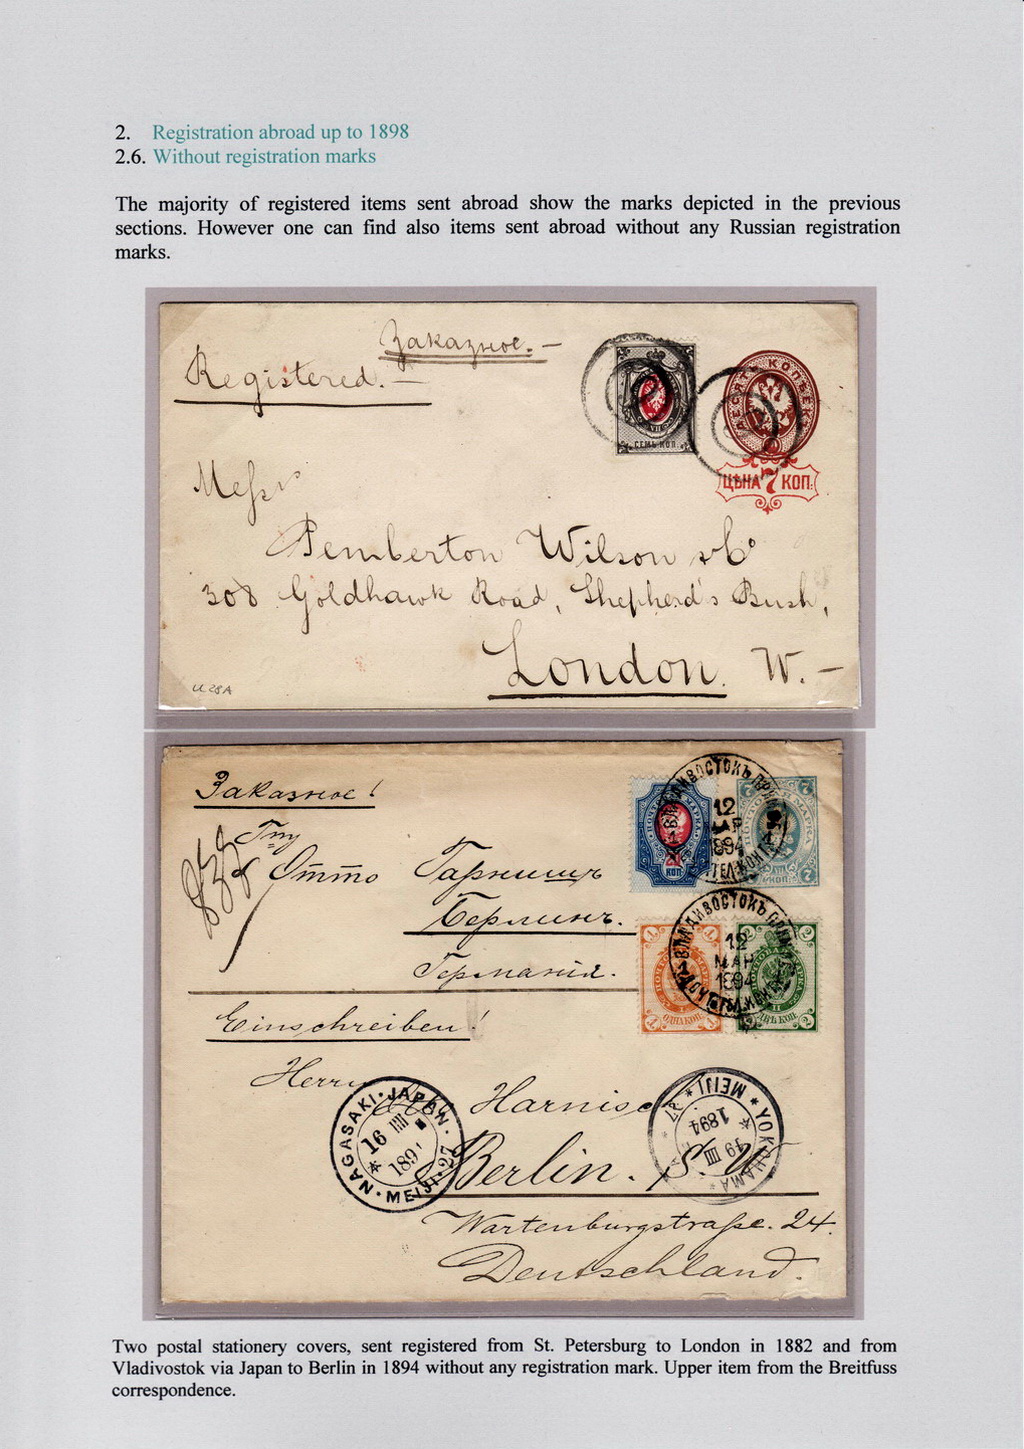 2. Registration abroad up to 1898
2.6. Without registration marks
The majority of registered items sent abroad show the marks depicted in the previous
sections. However one can find also items sent abroad without any Russian registration
marks.
Заказное. —
Registered. —
СЕМЬ КОП.
ДЕСЯТЬ КОПѢЕКЪ
ЦѢНА 7 КОП.
Messrs
Pemberton Wilson & Co
308 Goldhawk Road, Shepherd's Bush,
London. W. —
U 28A
Заказное!
Отто Гарнишъ
Берлинъ.
Германія.
Einschreiben!
ВЛАДИВОСТОКЪ
12
МАР
1894
7
КОП.
ВЛАДИВОСТОКЪ
12
МАР
1894
1 1
ОДНА КОП.
2 2
ДВѢ КОП.
Herrn
Harnisch
Berlin. S. W.
Wartenburgstraße. 24.
Deutschland.
NAGASAKI · JAPAN · MEIJI · 27
16 III
YOKOHAMA * MEIJI 27
19 III
1894
Two postal stationery covers, sent registered from St. Petersburg to London in 1882 and from
Vladivostok via Japan to Berlin in 1894 without any registration mark. Upper item from the Breitfuss
correspondence.